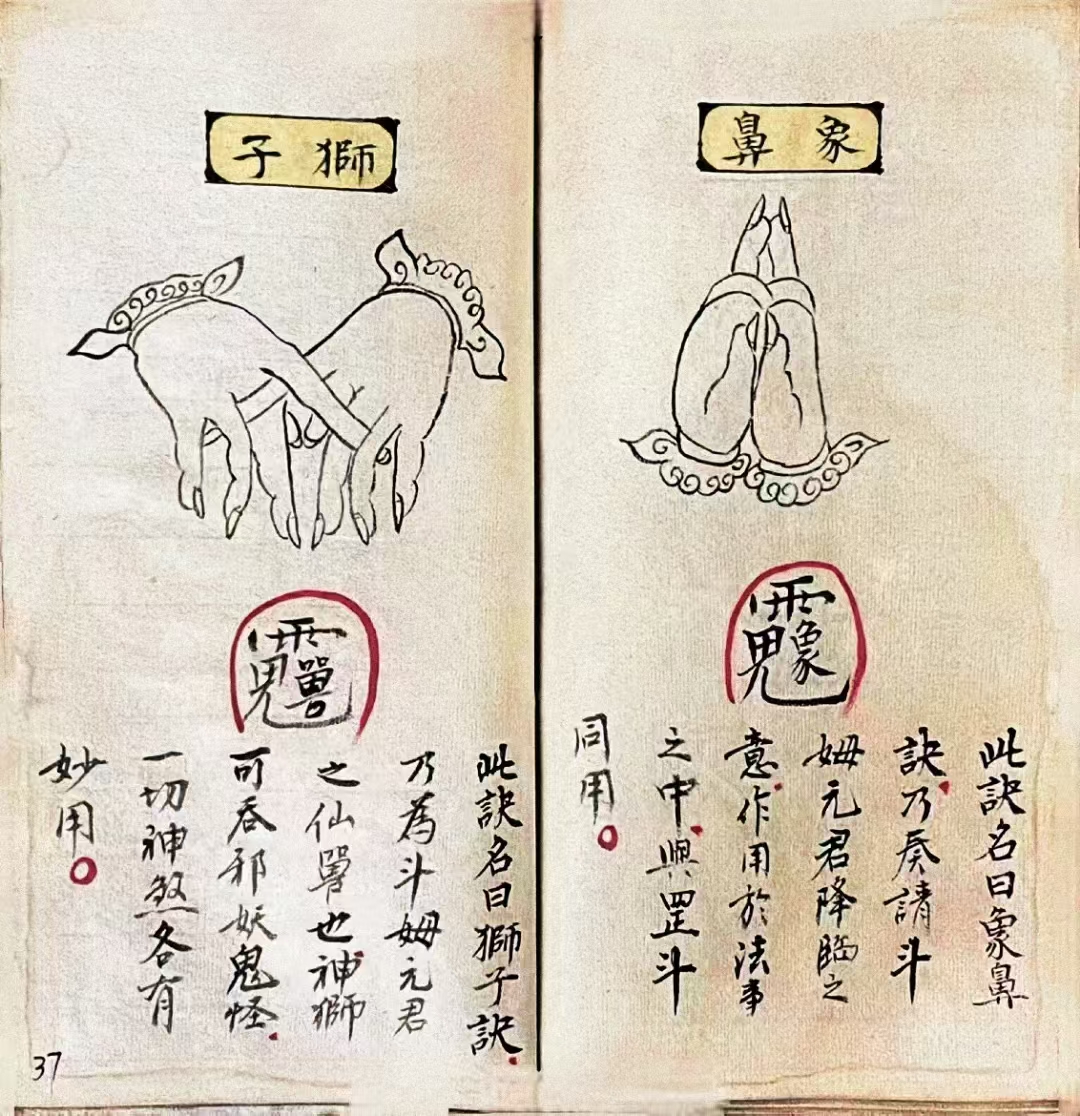 象鼻
此訣名曰象鼻
訣乃奏請斗
姆元君降臨之
意作用於法事
之中與罡斗
同用。
獅子
此訣名曰獅子訣
乃為斗姆元君
之仙嘼也神獅
可吞邪妖鬼怪
一切神煞各有
妙用。
37